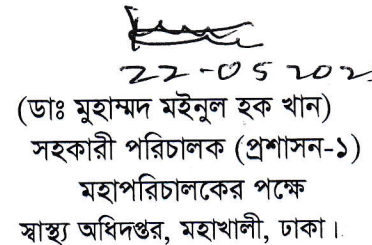 22-05 202
(ডাঃ মুহাম্মদ মইনুল হক খান)
সহকারী পরিচালক (প্রশাসন-১)
মহাপরিচালকের পক্ষে
স্বাস্থ্য অধিদপ্তর, মহাখালী, ঢাকা।